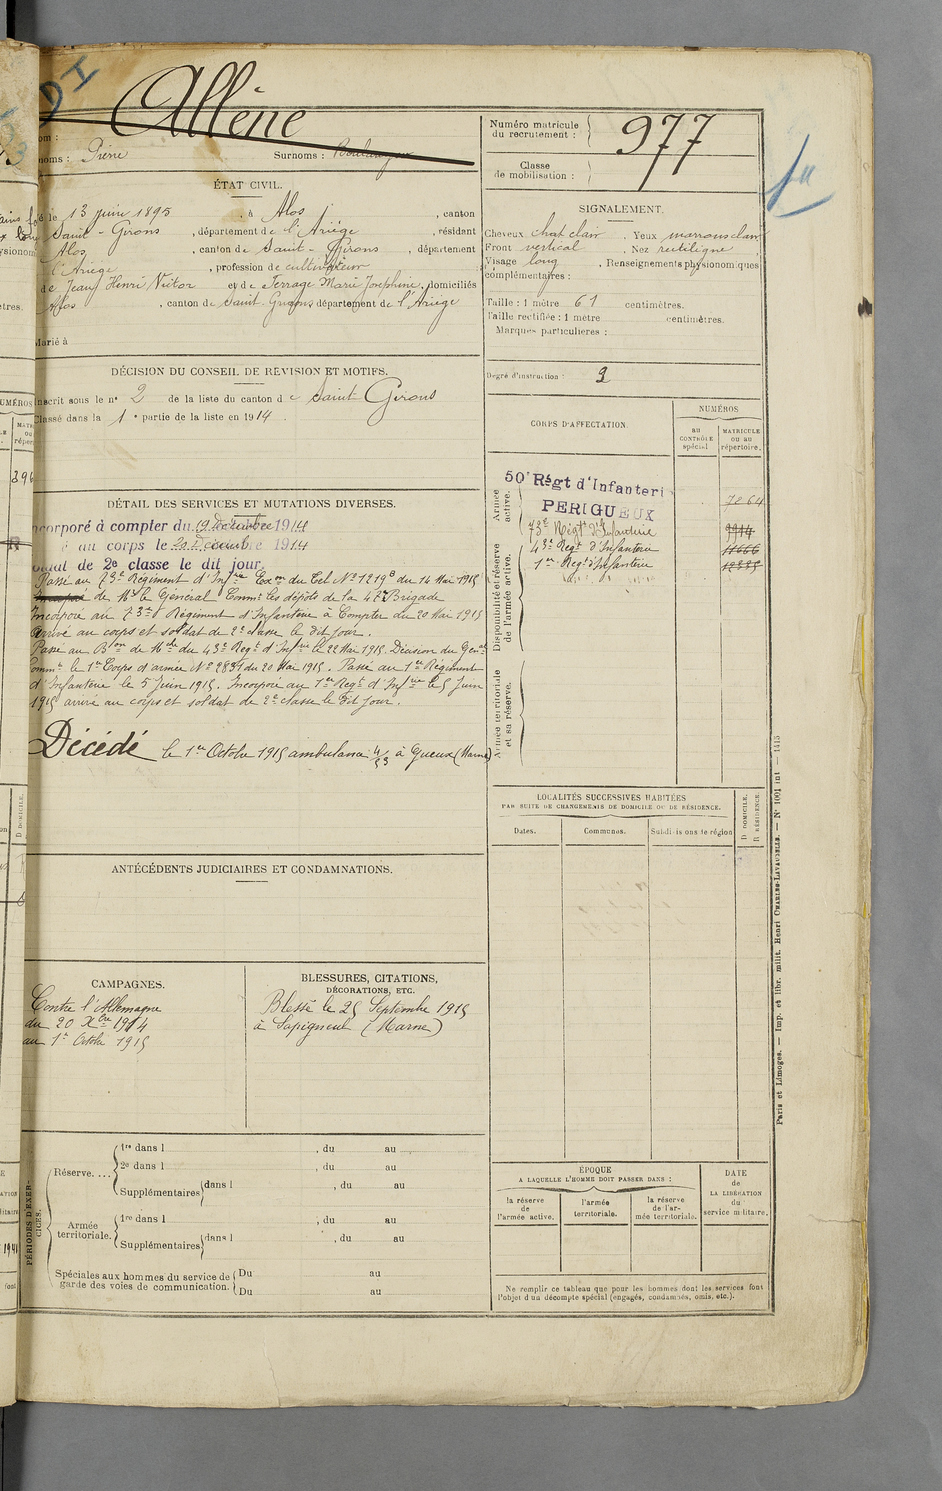 DI
Allène
Nom :
Prénoms : Pierre Surnoms :
Numéro matricule
du recrutement : 977
Classe
de mobilisation :
ÉTAT CIVIL.
Né le 13 juin 1895, à Alos, canton
Saint-Girons, département de l'Ariège, résidant
Alos, canton de Saint-Girons, département
l'Ariège, profession de cultivateur
de Jean Henri Victor et de Terrage Marie Josephine, domiciliés
Alos, canton de Saint-Girons département de l'Ariège
Marié à
SIGNALEMENT.
Cheveux chat clair. Yeux marrons clair
Front vertical. Nez rectiligne
Visage long. Renseignements physionomiques
complémentaires :
Taille : 1 mètre 61 centimètres.
Taille rectifiée : 1 mètre centimètres.
Marques particulières :
Degré d'instruction : 3
DÉCISION DU CONSEIL DE RÉVISION ET MOTIFS.
Inscrit sous le n° 2 de la liste du canton de Saint Girons
Classé dans la 1e partie de la liste en 1914.
CORPS D'AFFECTATION.
NUMÉROS
au
CONTRÔLE
spécial
MATRICULE
ou au
répertoire.
Armée
active.
50e Régt d'Infanterie
PERIGUEUX
7864
73e Régt d'Infanterie
43e Regt d'Infanterie 11666
1er Regt d'Infanterie
Disponibilité et réserve
de l'armée active.
Armée territoriale
et sa réserve.
DÉTAIL DES SERVICES ET MUTATIONS DIVERSES.
Incorporé à compter du 19 Décembre 1914
au corps le 20 Décembre 1914
soldat de 2e classe le dit jour.
Passé au 73e Régiment d'Infrie Exon du Tel N° 1219 du 14 Mai 1915
de Mr le Général Commt les dépôts de la 42e Brigade
Incorporé au 73e Régiment d'Infanterie à Compter du 20 Mai 1915
Arrivé au corps et soldat de 2e classe le dit jour.
Passé au Bon de Mche du 43e Regt d'Infrie le 22 Mai 1915. Décision du Genal
Commt le 1er Corps d'armée N° 2831 du 20 Mai 1915. Passé au 1er Régiment
d'Infanterie le 5 Juin 1915. Incorporé au 1er Regt d'Infrie le 5 Juin
1915 arrivé au corps et soldat de 2e classe le dit jour.
Décédé le 1er Octobre 1915 ambulance 4/53 à Gueux (Marne)
LOCALITÉS SUCCESSIVES HABITÉES
PAR SUITE DE CHANGEMENTS DE DOMICILE OU DE RÉSIDENCE.
Dates. Communes. Subdivisions de région
D DOMICILE.
R RÉSIDENCE.
ANTÉCÉDENTS JUDICIAIRES ET CONDAMNATIONS.
CAMPAGNES.
Contre l'Allemagne
du 20 Xbre 1914
au 1er Octobre 1915
BLESSURES, CITATIONS,
DÉCORATIONS, ETC.
Blessé le 25 Septembre 1915
à Sapigneul (Marne)
PÉRIODES D'EXERCICES.
Réserve....
1re dans l , du au
2e dans l , du au
Supplémentaires dans l , du au
Armée
territoriale.
1re dans l , du au
Supplémentaires dans l , du au
Spéciales aux hommes du service de
garde des voies de communication.
Du au
Du au
ÉPOQUE
A LAQUELLE L'HOMME DOIT PASSER DANS :
la réserve
de
l'armée active.
l'armée
territoriale.
la réserve
de l'ar-
mée territoriale.
DATE
de
LA LIBÉRATION
du
service militaire.
Ne remplir ce tableau que pour les hommes dont les services font
l'objet d'un décompte spécial (engagés, condamnés, omis, etc.).
Paris et Limoges. — Imp. et libr. milit. Henri CHARLES-LAVAUZELLE. — N° 1001 int — 1413